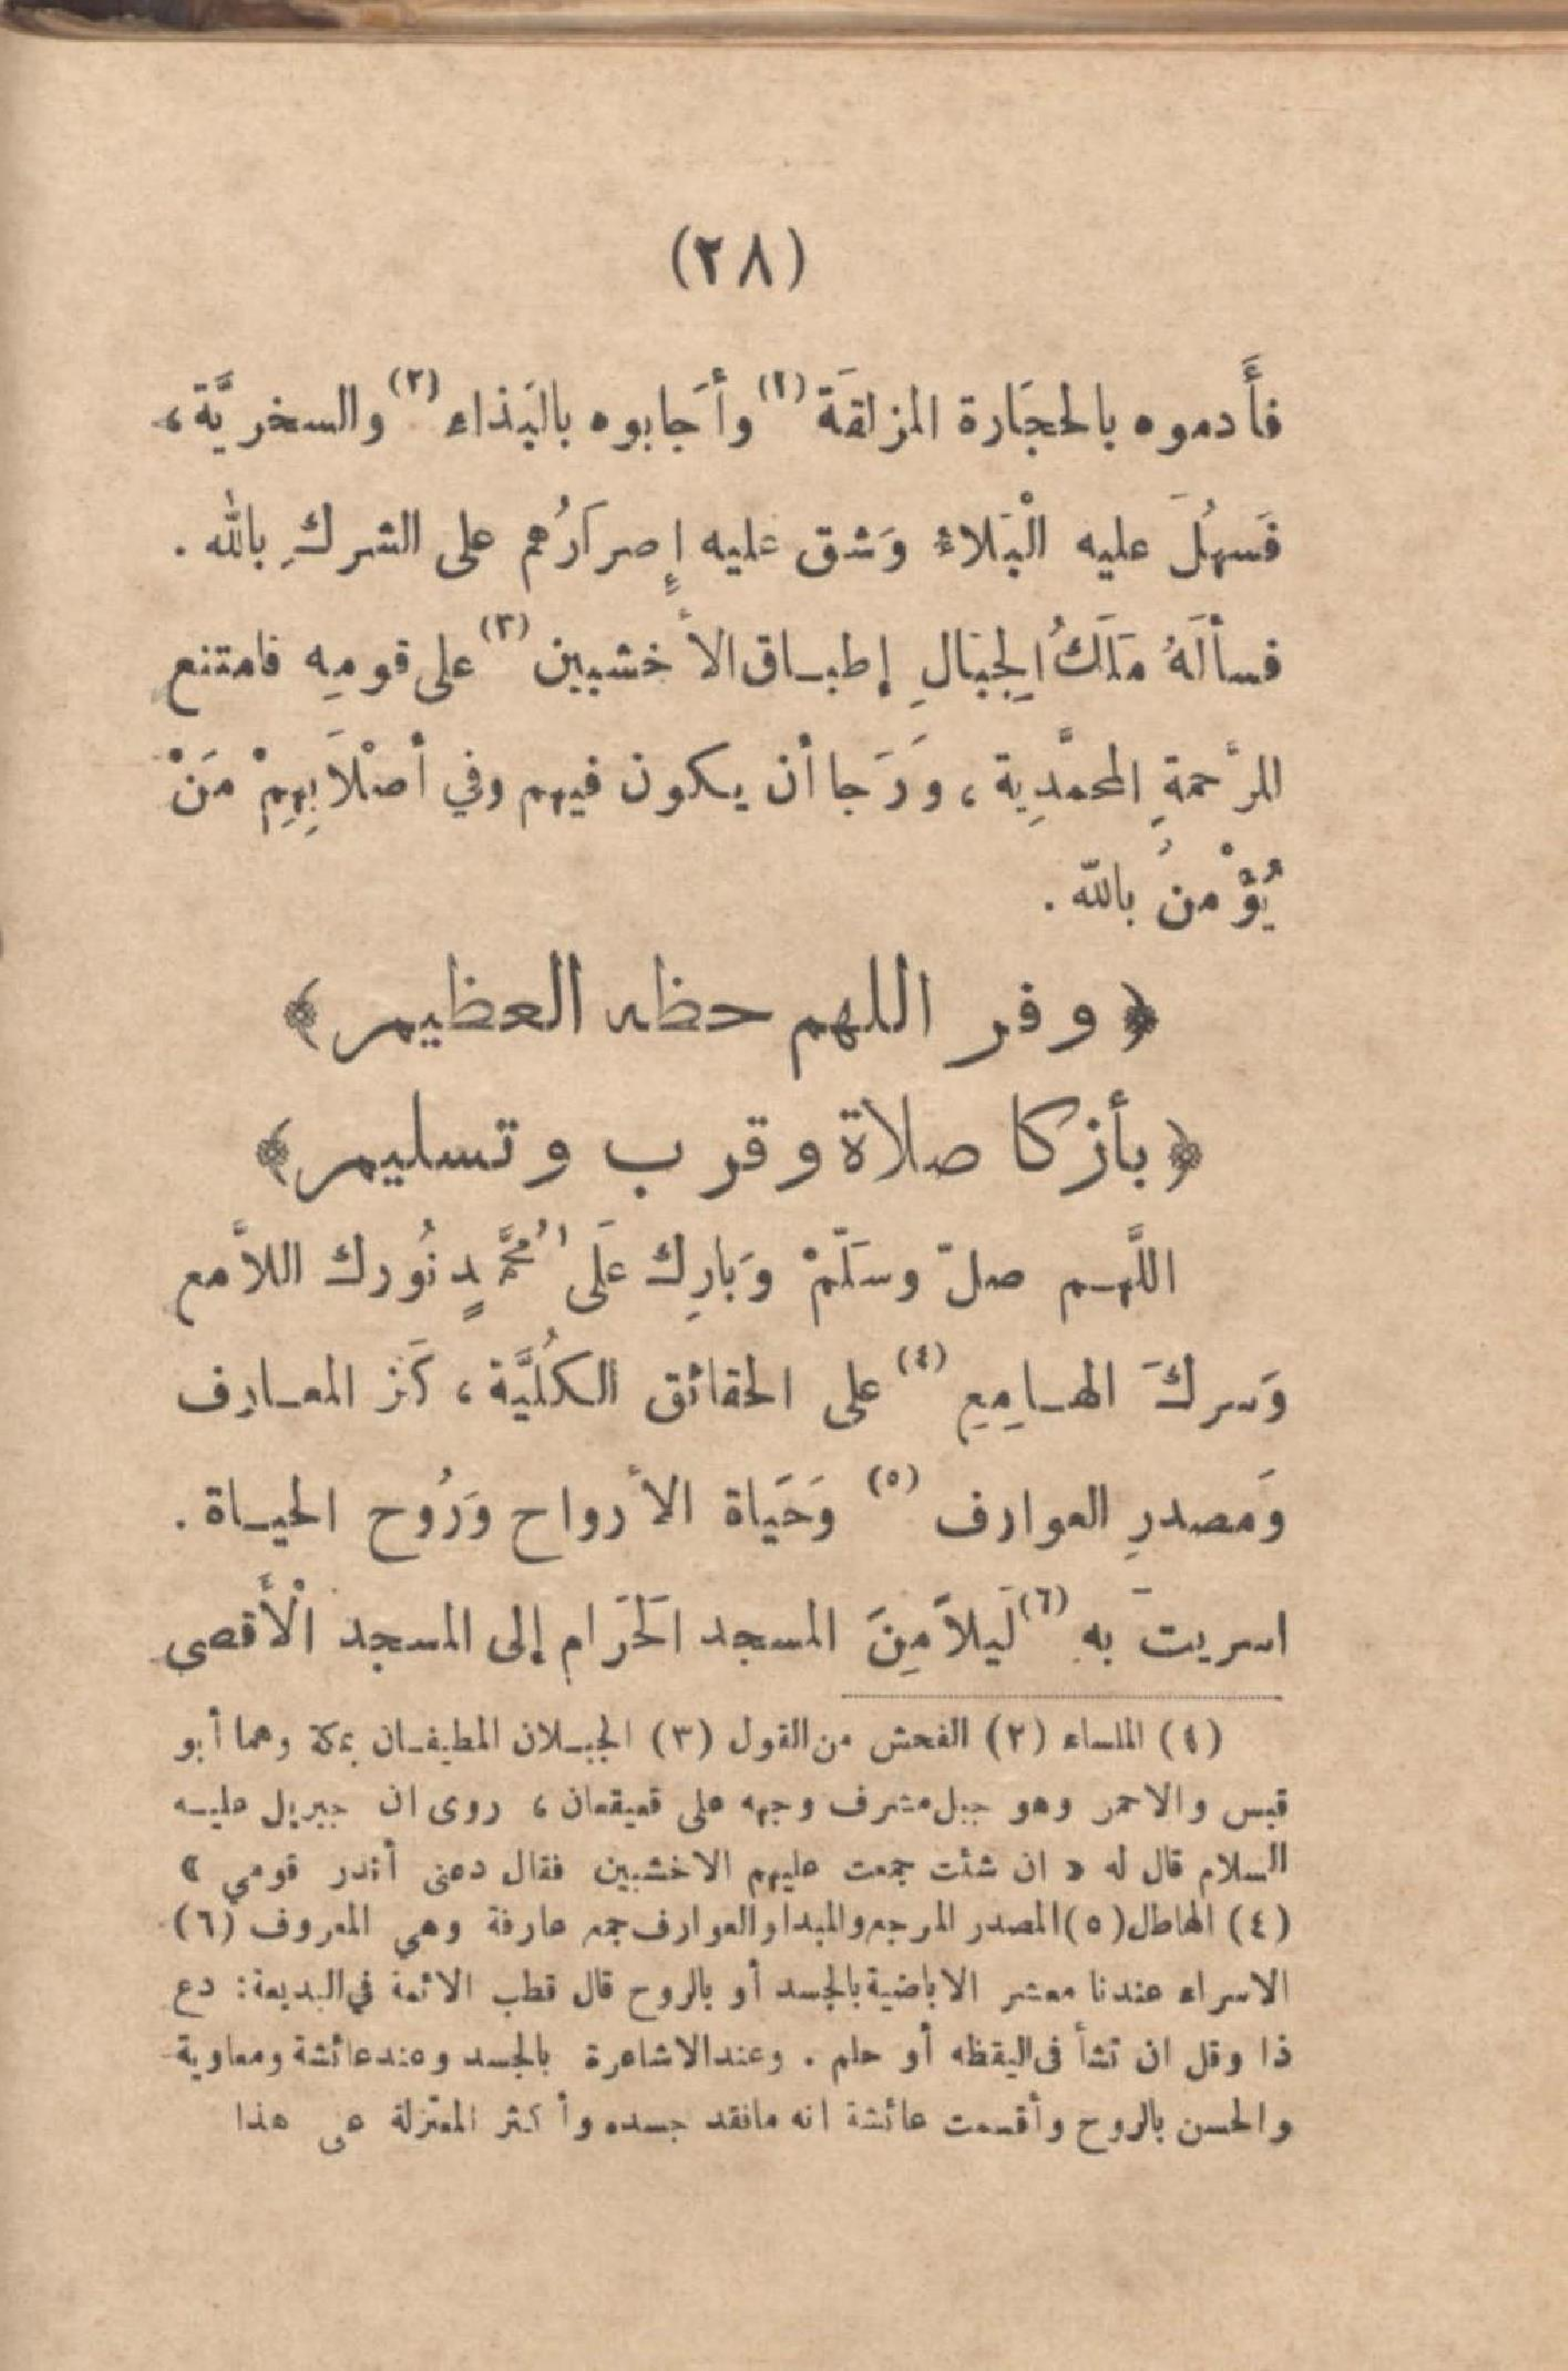 (٢٨)
فأَدموه بالحجَارة المزلقَة (١) وأجَابوه بالبَذاء (٢) والسخريَّة،
فَسهُلَ عليه الْبَلاءُ وَشق عليه إِصرَارُهم على الشركِ بالله .
فسألَهُ مَلَكُ الجِبَالِ إطبـاق الأخشبين (٣) على قومِه فامتنع
للرَّحمةِ المحمَّدِية ، وَرَجا أن يكون فيهم وفي أصْلَابِهِمْ مَنْ
يُؤْمنُ بالله .
﴿ وفر اللهم حظه العظيم ﴾
﴿ بأزكا صلاة وقرب وتسليم ﴾
اللَّهـم صلّ وسَلّمْ وَبارِك عَلَى مُحَمَّدٍ نُورك اللاَّمع
وَسركَ الهـامِعِ (٤) على الحقائق الكُلِّيَّة ، كَنز المعـارِف
وَمصدرِ العوارف (٥) وَحَيَاة الأرواح وَرُوح الحيـاة .
اسريتَ به (٦) لَيلاً مِنَ المسجد الحَرَام إلى المسجد الْأَقصى
(١) الملساء (٢) الفحش من القول (٣) الجبـلان المطيفـان بمكة وهما أبو
قبس والاحمر وهو جبل مشرف وجهه على قعيقعان ، روى ان جبريل عليـه
السلام قال له « ان شئت جمعت عليهم الاخشبين فقال دعنى أنذر قومي »
(٤) الهاطل (٥) المصدر المرجع والمبدا والعوارف جمع عارفة وهي المعروف (٦)
الاسراء عندنا معشر الاباضية بالجسد أو بالروح قال قطب الائمة في البديعة: دع
ذا وقل ان تشأ فى اليقظه أو حلم . وعند الاشاعرة بالجسد وعند عائشة ومعاوية
والحسن بالروح وأقسمت عائشة انه مافقد جسده وأكثر المعتزلة على هذا